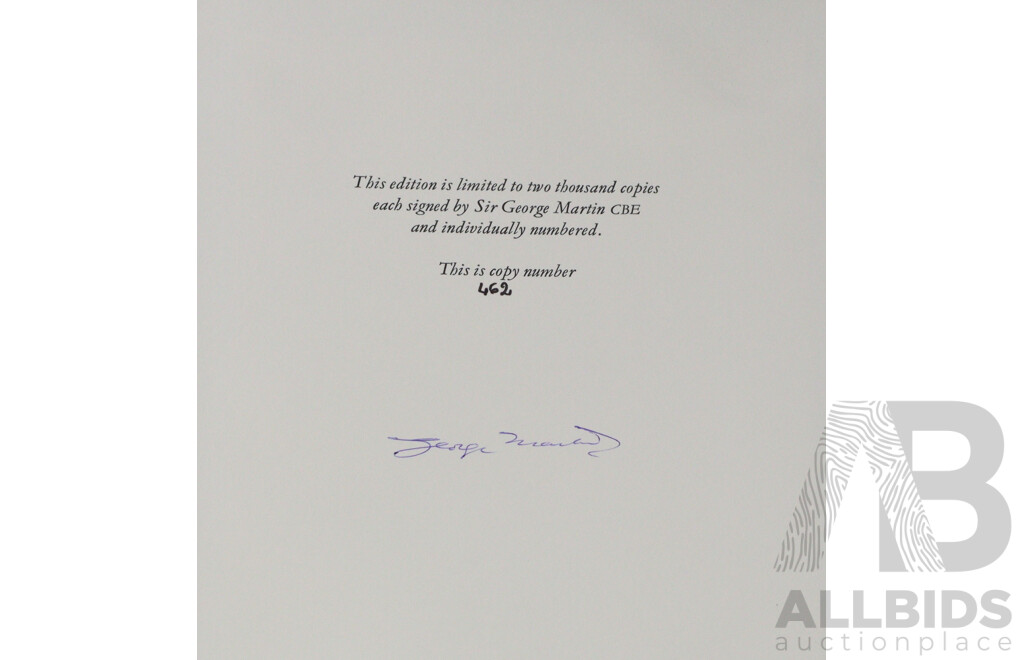 This edition is limited to two thousand copies
each signed by Sir George Martin CBE
and individually numbered.
This is copy number
462
George Martin
AB
ALLBIDS
auctionplace